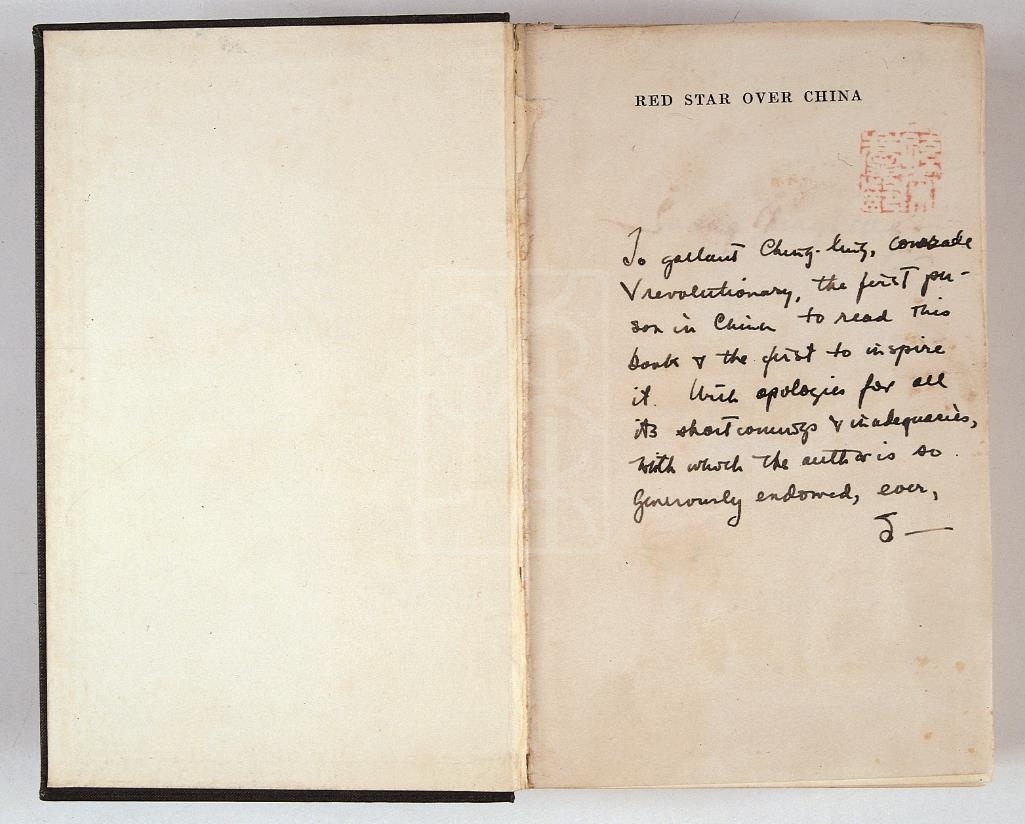 RED STAR OVER CHINA
To gallant Ching-ling, comrade
& revolutionary, the first per-
son in China to read this
book & the first to inspire
it. With apologies for all
its shortcomings & inadequacies,
with which the author is so
generously endowed, ever,
S—